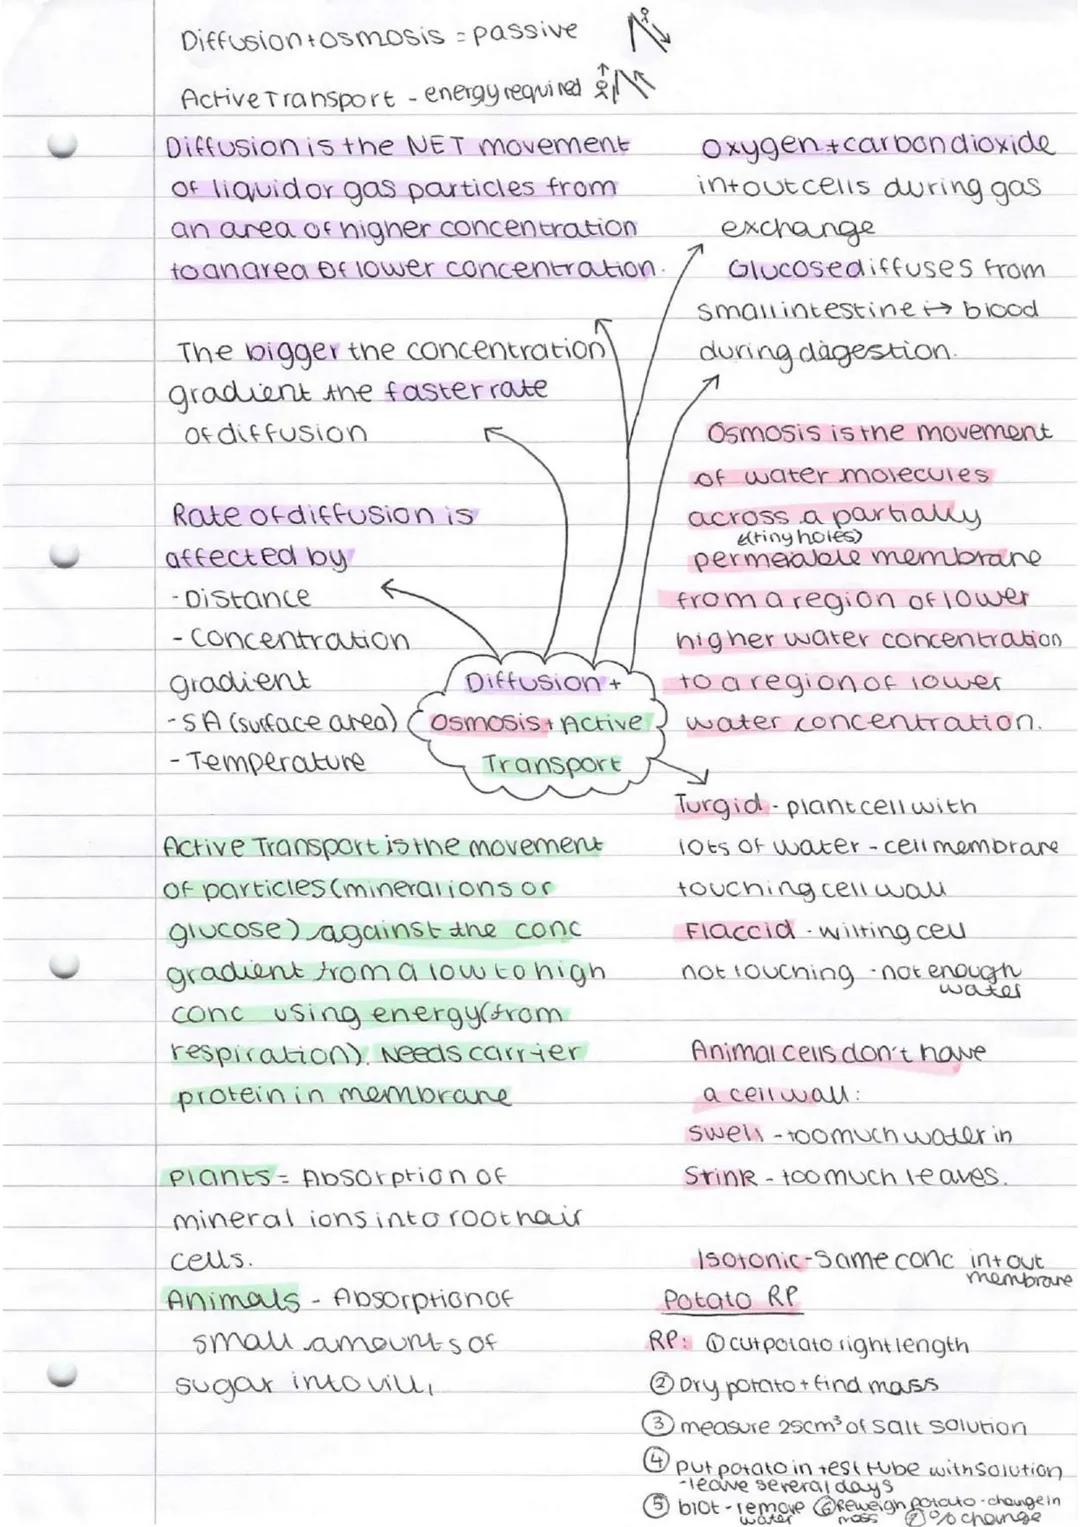 Diffusion + osmosis = passive
Active Transport - energy required
Diffusion is the NET movement
of liquid or gas particles from
an area of higher concentration
to an area of lower concentration.
The bigger the concentration
gradient the faster rate
of diffusion
Rate of diffusion is
affected by
- Distance
- Concentration
gradient
- SA (surface area)
- Temperature
Diffusion +
Osmosis + Active
Transport
oxygen + carbon dioxide
in + out cells during gas
exchange
Glucose diffuses from
small intestine → blood
during digestion.
Osmosis is the movement
of water molecules
across a partially
(tiny holes)
permeable membrane
from a region of lower
higher water concentration
to a region of lower
water concentration.
Turgid - plant cell with
lots of water - cell membrane
touching cell wall
Flaccid - wilting cell
not touching - not enough
water
Animal cells don't have
a cell wall:
swell - too much water in
Srink - too much leaves.
Isotonic - Same conc in + out
membrane
Active Transport is the movement
of particles (mineral ions or
glucose) against the conc
gradient from a low to high
conc using energy (from
respiration). Needs carrier
protein in membrane
Plants = Absorption of
mineral ions into root hair
cells.
Animals - Absorption of
small amounts of
sugar into villi
Potato RP
RP: ① cut potato right length
② Dry potato + find mass
③ measure 25cm³ of salt solution
④ put potato in test tube with solution
- leave several days
⑤ blot - remove water ⑥ Reweigh potato - change in mass ⑦ % change